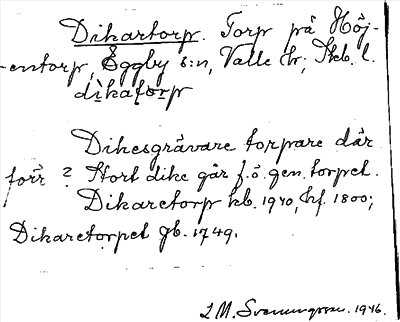 Dikartorp. Torp på Höj-
-entorp, Eggby s:n, Valle hr; Skb. l.
dikatorp
Dikesgrävare torpare där
förr? Stort dike går f.ö. gen. torpet.
Dikaretorp kb. 1940, hf. 1800;
Dikaretorpet gb. 1749.
L M. Svenungsson. 1946.